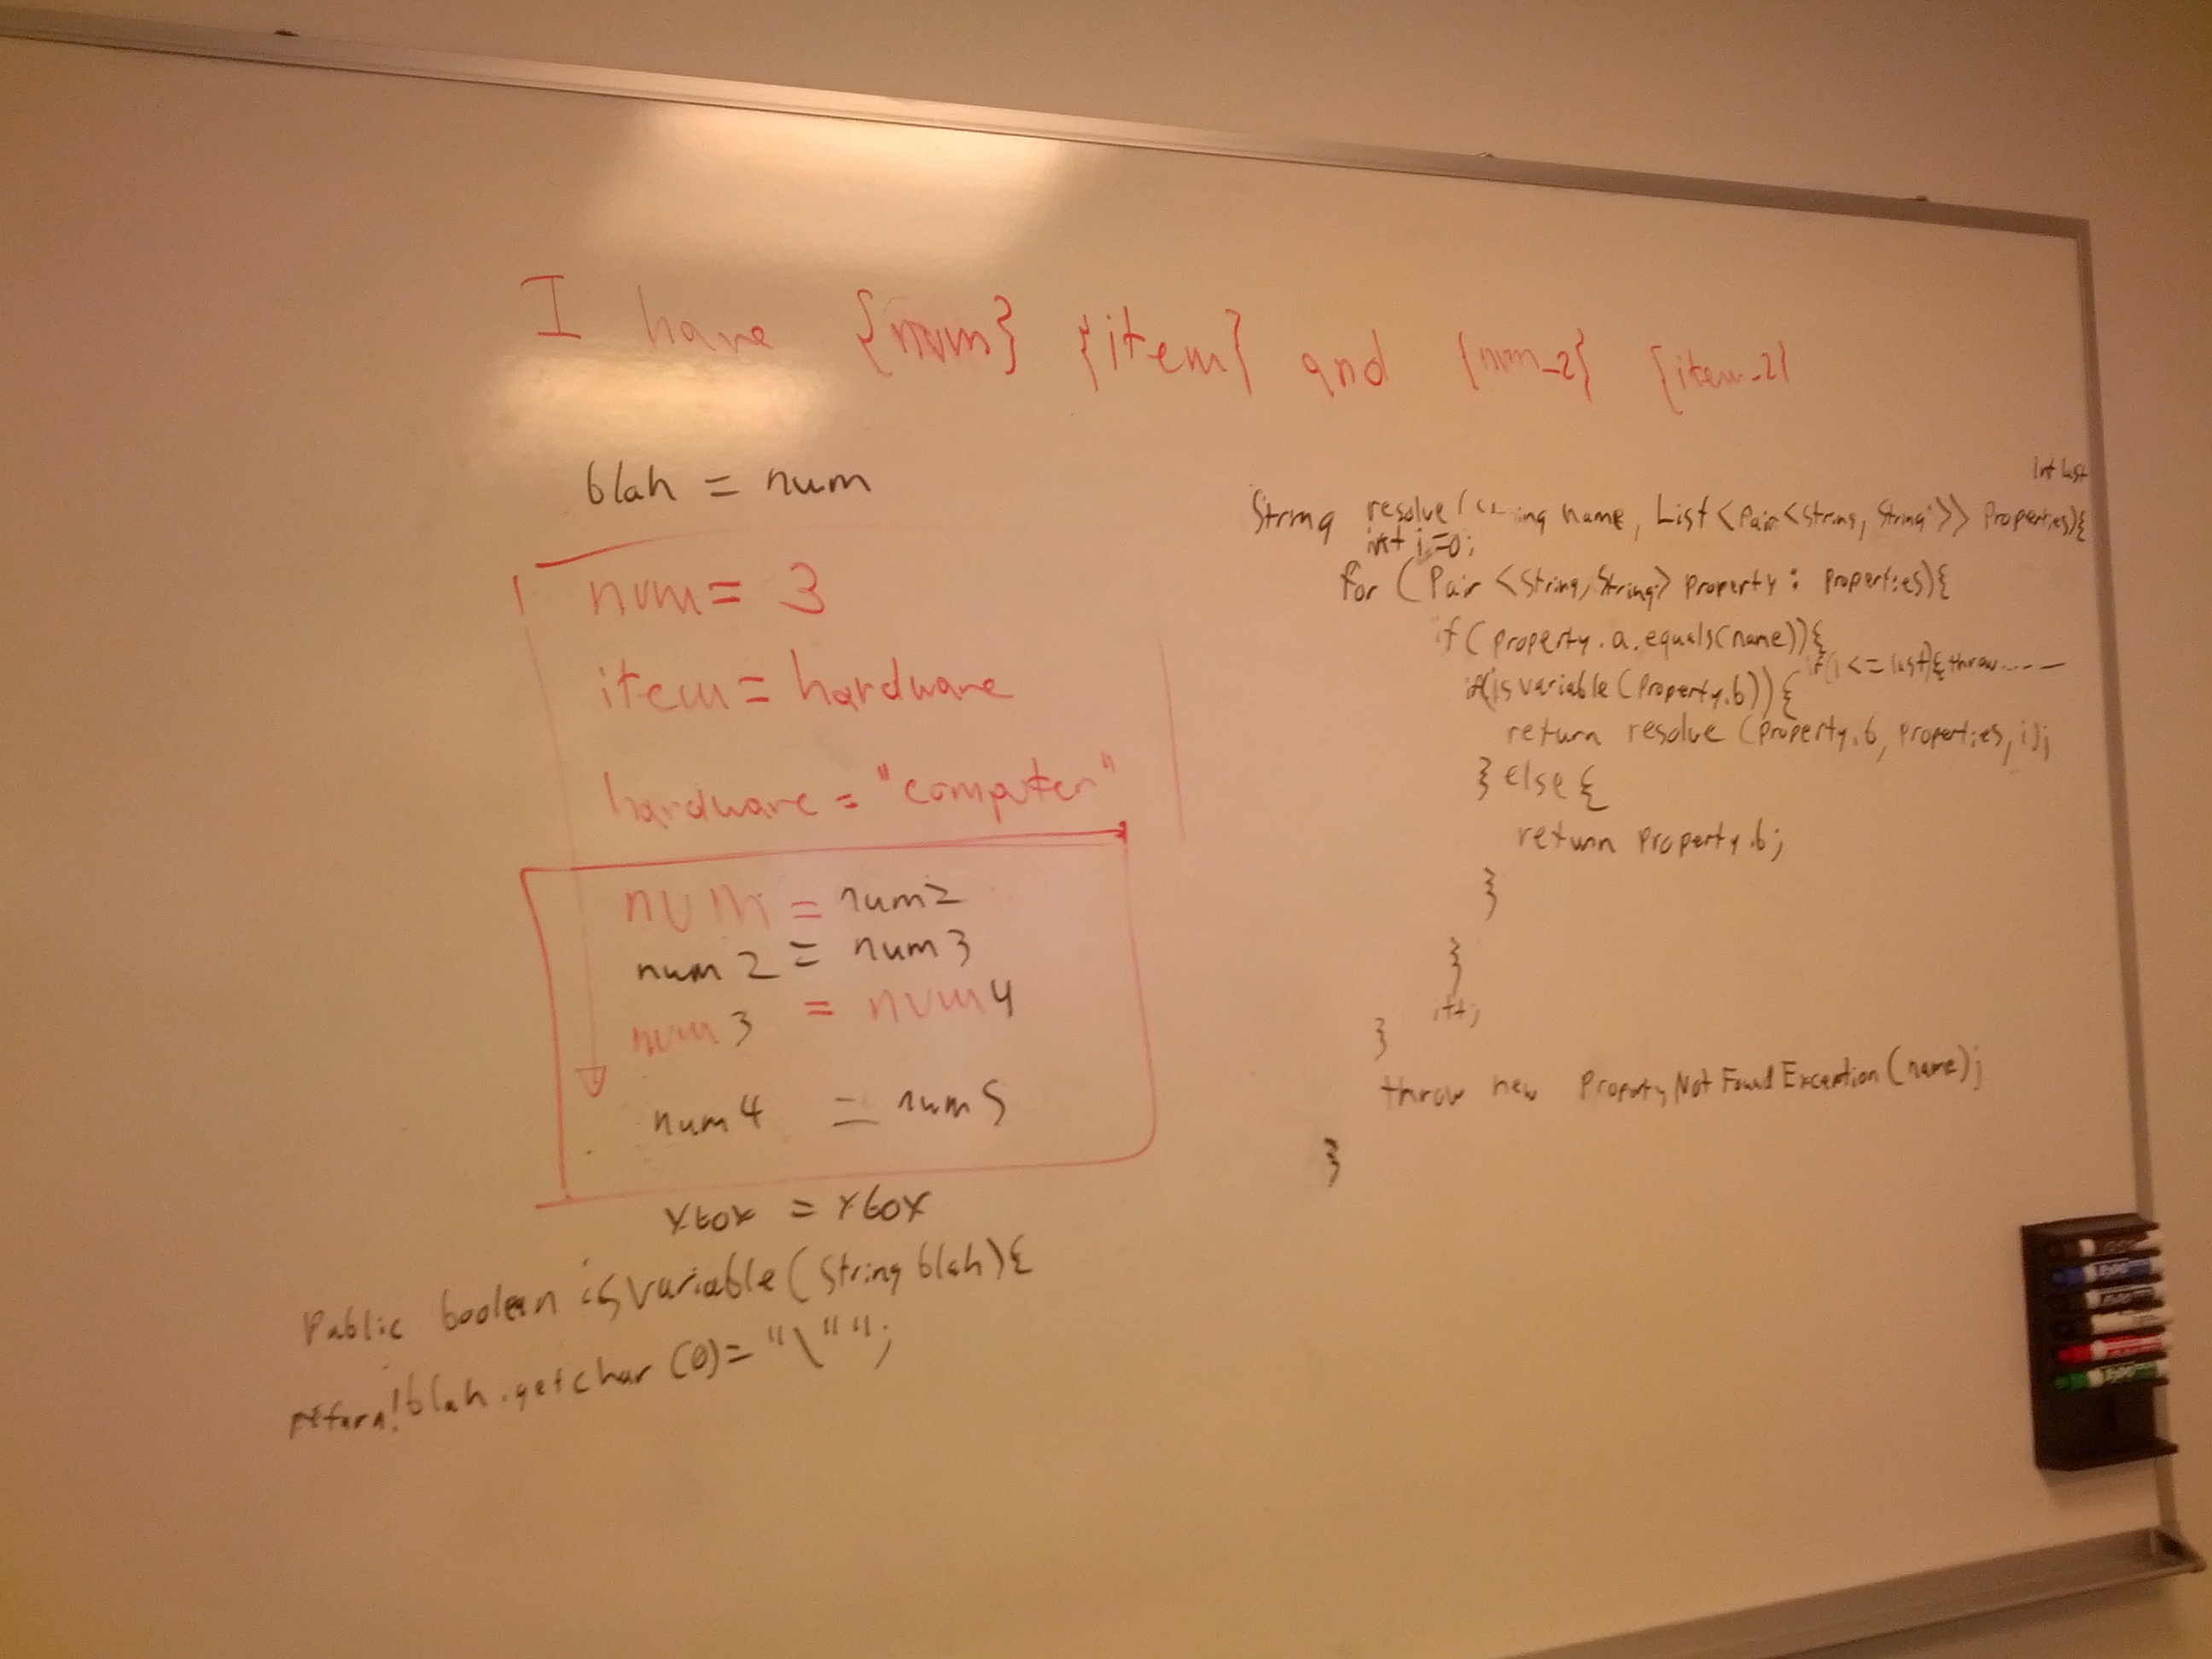 I have {num} {item} and {num_2} {item_2}
blah = num
num = 3
item = hardware
hardware = "computer"
num = num2
num2 = num3
num3 = num4
num4 = num5
xbox = xbox
Public boolean isVariable(String blah){
return!blah.getchar(0)="\"";
int last
String resolve(String name, List<Pair<String, String>> Properties){
int i=0;
for (Pair<String, String> property: properties){
if(property.a.equals(name)){
if(i<=last){throw.....—
if(isvariable(property.b)){
return resolve(property.b, properties, i);
} else {
return property.b;
}
}
i++;
}
throw new PropertyNotFoundException(name);
}
EXPO
EXPO